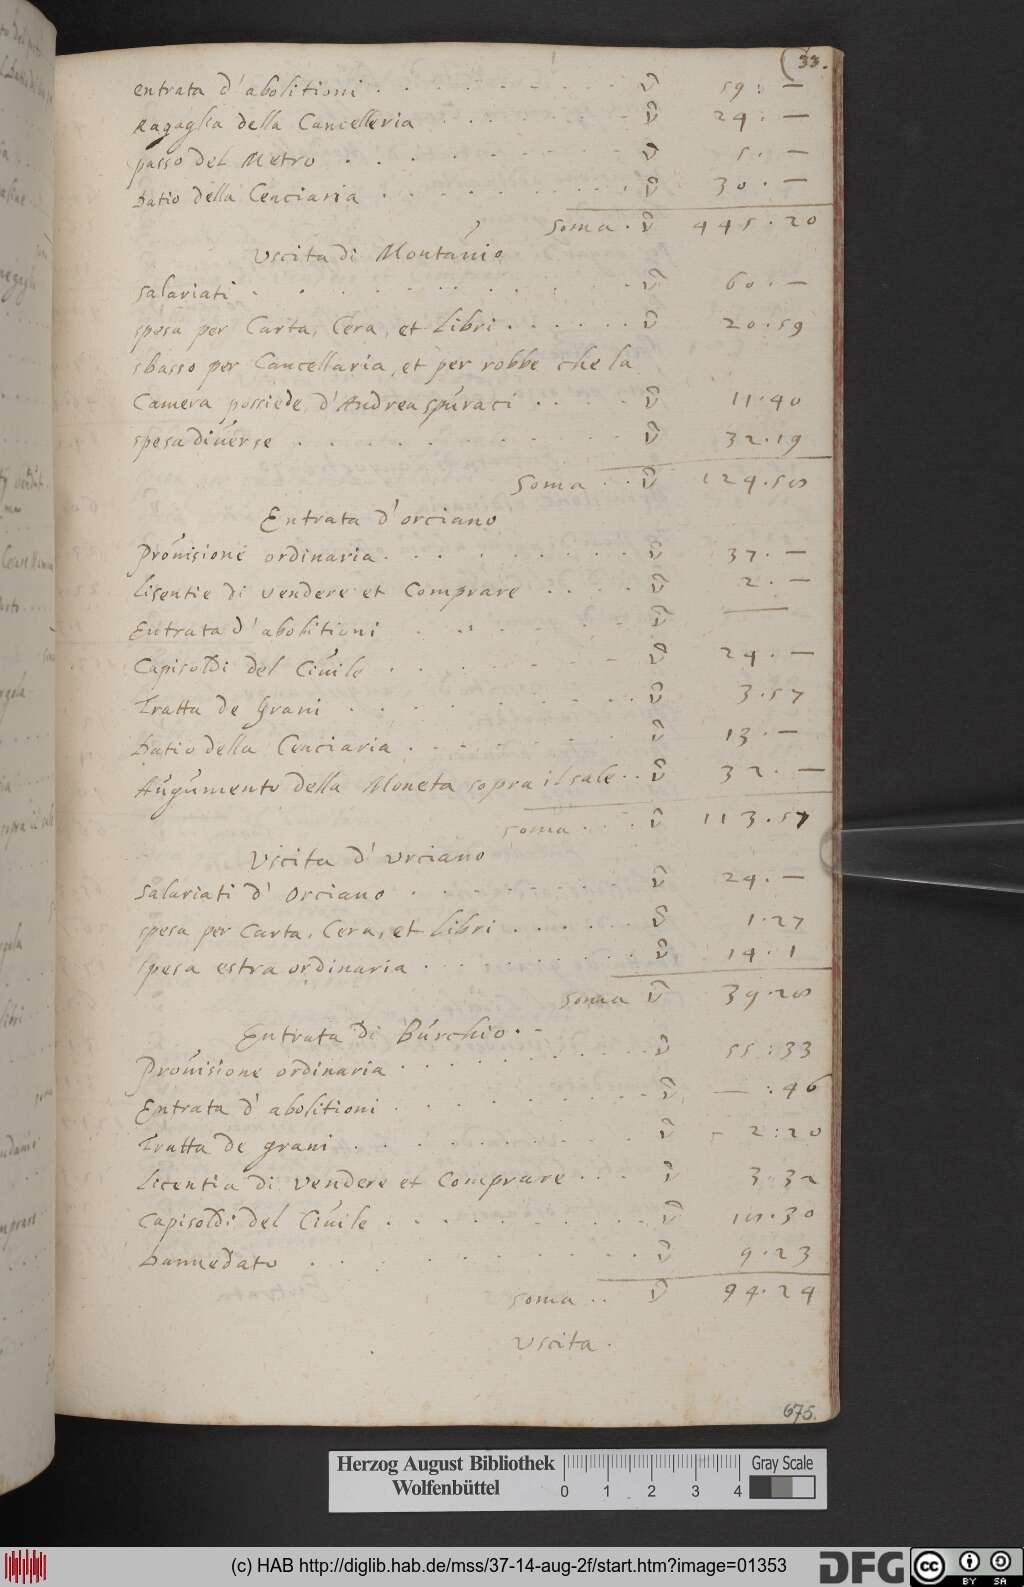 33.
entrata d'abolitioni . . . . . . . . . ṽ 59 : —
Ragaglia della Cancelleria . . . . . . ṽ 24 . —
passo del Metro . . . . . . . . ṽ 5 . —
Datio della Cenciaria . . . . . . . . ṽ 30 . —
Soma . ṽ 445 . 20
Uscita di Montánio
Salariati . . . . . . . . . . ṽ 60 . —
spesa per Carta, Cera, et Libri . . . . . . ṽ 20 . 59
sbasso per Cancellaria, et per robbe che la
Camera possiede, d'Andrea spúraci . . . . ṽ 11 . 40
spesa diúerse . . . . . . . . . ṽ 32 . 19
Soma . . ṽ 124 . 58
Entrata d'orciano
Proúisione ordinaria . . . . . . . . ṽ 37 . —
Lisentie di vendere et Comprare . . . . ṽ 2 . —
Entrata d'abolitioni . . . . . . ṽ —
Capisoldi del Ciúile . . . . . . ṽ 24 . —
Tratta de Grani . . . . . . . . ṽ 3 . 57
Datio della Cenciaria . . . . . . . ṽ 13 . —
Aúgúmento della Moneta sopra il sale . . ṽ 32 . —
soma . . . . ṽ 113 . 57
Uscita d'urciano
Salariati d'Orciano . . . . . . . ṽ 24 . —
spesa per Carta, Cera, et Libri . . . . . . ṽ 1 . 27
spesa estra ordinaria . . . . . . . . ṽ 14 . 1
soma ṽ 39 . 28
Entrata di Búrchio . -
Proúisione ordinaria . . . . . . . . ṽ 55 : 33
Entrata d'abolitioni . . . . . . . . ṽ — : 46
Tratta de grani . . . . . . . ṽ - 2 : 20
Licentia di vendere et Comprare . . . ṽ 3 . 32
Capisoldi del Ciúile . . . . . . . . ṽ . 30
Dannedato . . . . . . . . ṽ 9 . 23
soma . . ṽ 94 . 24
Uscita .
675.
Herzog August Bibliothek
Wolfenbüttel
0 1 2 3 4
Gray Scale
(c) HAB http://diglib.hab.de/mss/37-14-aug-2f/start.htm?image=01353
DFG
cc BY SA